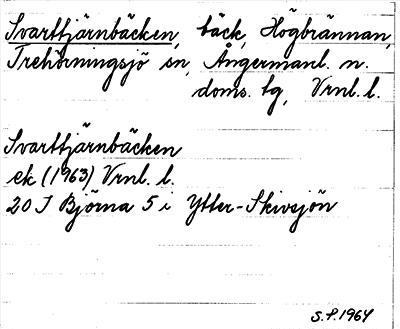 Svarttjärnbäcken, bäck, Högbrännan,
Trehörningsjö sn, Ångermanl. n.
doms. tg, Vrnl. l.
Svarttjärnbäcken
ek (1963) Vrnl. l.
20 I Björna 5 i Ytter-Skivsjön
S.F. 1964